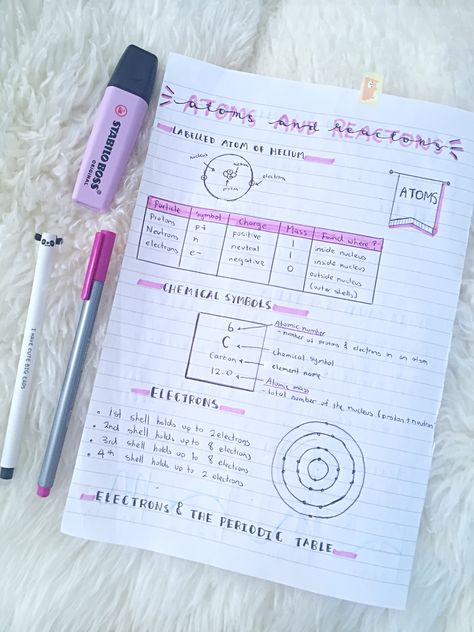 STABILO BOSS
ORIGINAL
ATOMS AND REACTONS
atoms and reactons
LABELLED ATOM OF HELIUM
nucleus
electrons
proton
ATOMS
Particle Symbol Charge Mass Found where?
Protons p+ positive 1 inside nucleus
Neutrons n neutral 1 inside nucleus
electrons e- negative 0 outside nucleus
(outer shells)
CHEMICAL SYMBOLS
6 Atomic number
- number of protons & electrons in an atom
C chemical symbol
Carbon element name
12.0 Atomic mass
- total number of the nucleus (proton + neutron
ELECTRONS
• 1st shell holds up to 2 electrons
• 2nd shell holds up to 8 electrons
• 3rd shell holds up to 8 electrons
• 4th shell holds up to 2 electrons
ELECTRONS & THE PERIODIC TABLE